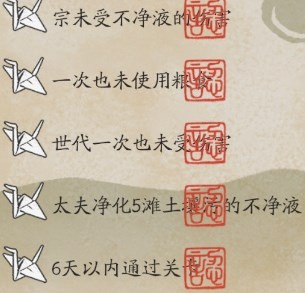 宗未受不净液的伤害
認
一次也未使用粮食
認
世代一次也未受伤害
認
太夫净化5滩土壤污的不净液
認
6天以内通过关
認